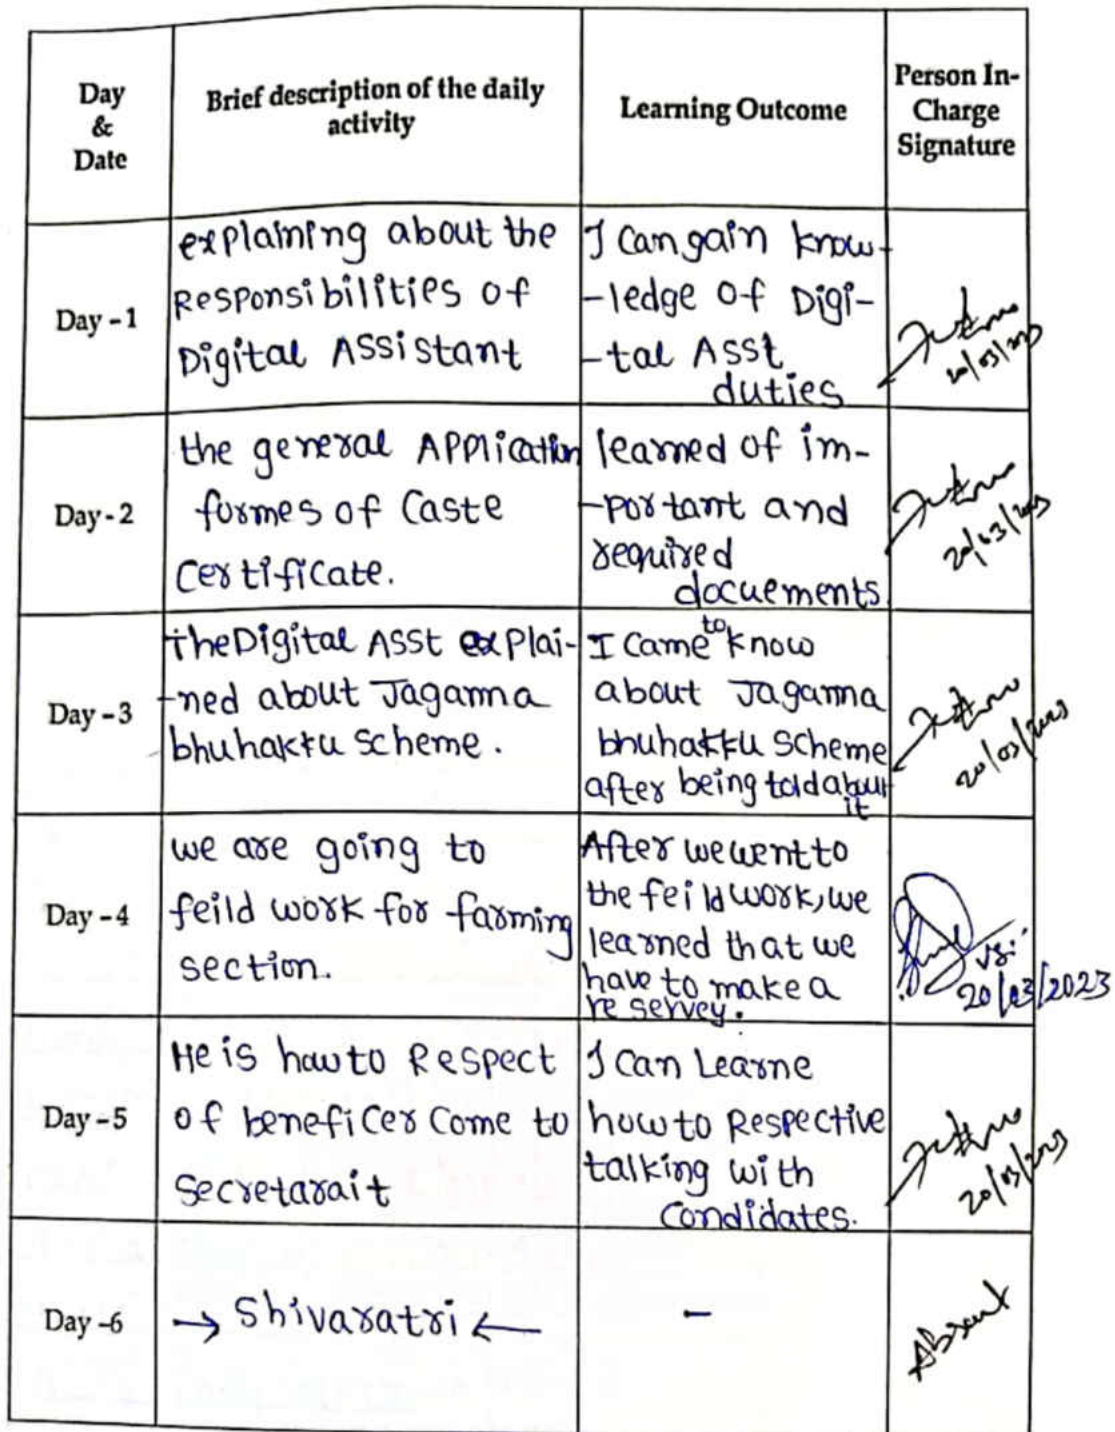 Day
&
Date
Brief description of the daily
activity
Learning Outcome
Person In-
Charge
Signature
Day - 1
explaining about the
Responsibilities of
Digital Assistant
I can gain know-
-ledge of Digi-
-tal Asst
duties
20/03/2023
Day - 2
the general Application
formes of Caste
Certificate.
learned of im-
-portant and
required
docuements
20/03/2023
Day - 3
The Digital Asst explai-
-ned about Jaganna
bhuhakku scheme.
I Came to know
about Jaganna
bhuhakku scheme
after being told about
it
20/03/2023
Day - 4
we are going to
feild work for farming
section.
After we went to
the feild work, we
learned that we
have to make a
re servey.
20/03/2023
Day - 5
He is how to Respect
of beneficer come to
secretarait
I can Learne
how to Respective
talking with
condidates.
20/03/2023
Day -6
→ Shivaratri ←
-
Absent